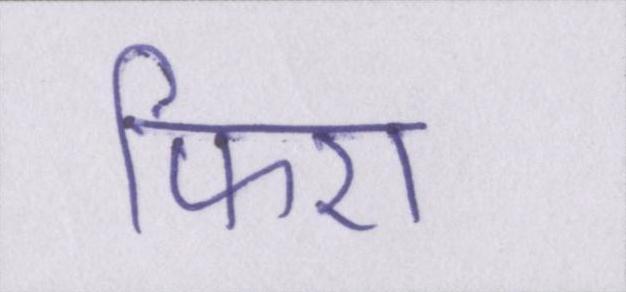 फिरा